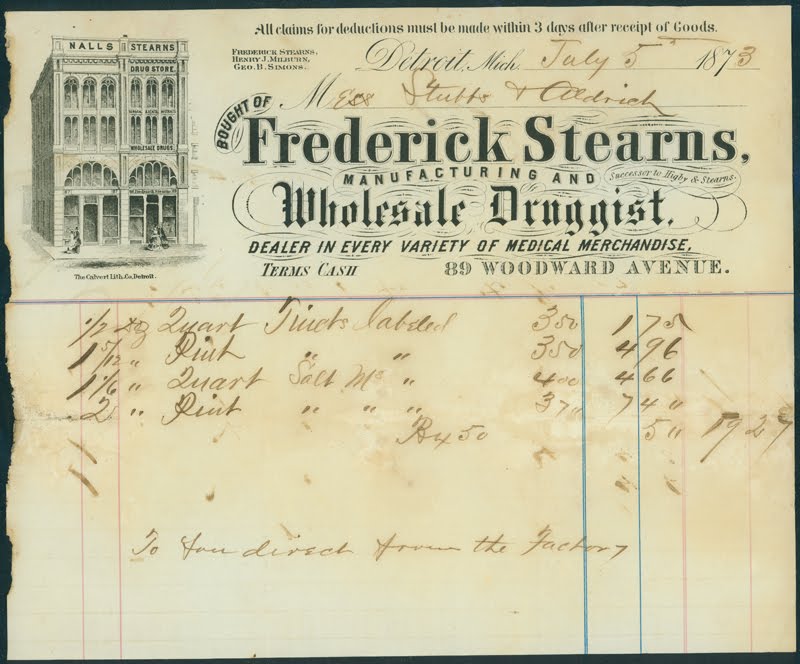 All claims for deductions must be made within 3 days after receipt of Goods.
NALLS STEARNS
DRUG STORE.
WHOLESALE DRUGS.
The Calvert Lith. Co. Detroit.
FREDERICK STEARNS,
HENRY J. MILBURN,
GEO. B. SIMONS.
Detroit, Mich. July 5th 1873
Mess Stubbs & Aldrich
BOUGHT OF
Frederick Stearns,
MANUFACTURING AND Successor to Higby & Stearns.
Wholesale Druggist.
DEALER IN EVERY VARIETY OF MEDICAL MERCHANDISE,
TERMS CASH 89 WOODWARD AVENUE.
1/2 Dz Quart Tincts labeled 350 175
1 5/12 " Pint " " 350 496
1 1/6 " Quart Salt M " 400 466
2 " Pint " " " 370 740
50 5 " 1927
To you direct from the Factory